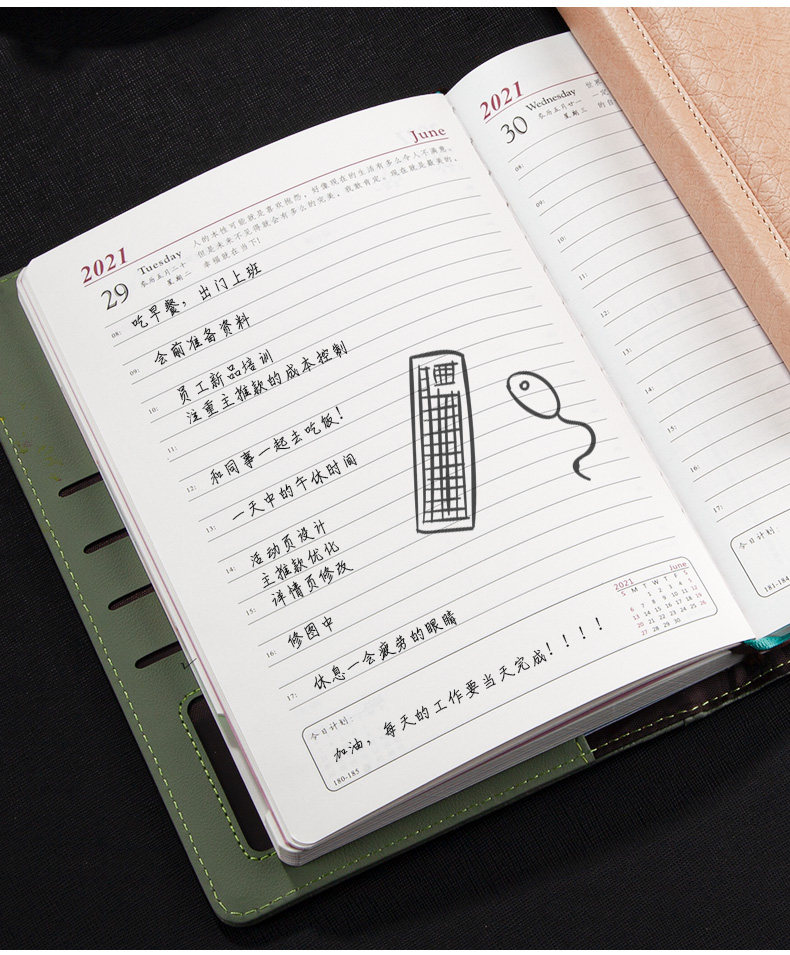 June
2021
29
Tuesday
农历五月二十
星期二
人的本性可能就是喜欢抱怨，好像现在的生活有多么令人不满意。
但是未来不见得就会有多么的完美，我敢肯定。现在就是最美的，
幸福就在当下！
08:
吃早餐，出门上班
09:
会前准备资料
10:
员工新品培训
注重主推款的成本控制
11:
12:
和同事一起去吃饭！
13:
一天中的午休时间
14:
活动页设计
主推款优化
15:
详情页修改
16:
修图中
17:
休息一会疲劳的眼睛
今日计划：
加油，每天的工作要当天完成！！！！
180-185
2021 June
S M T W T F S
1 2 3 4 5
6 7 8 9 10 11 12
13 14 15 16 17 18 19
20 21 22 23 24 25 26
27 28 29 30
2021
30
Wednesday
农历五月廿一
星期三
08:
09:
10:
11:
12:
13:
14:
15:
16:
17:
今日计划：
181-184